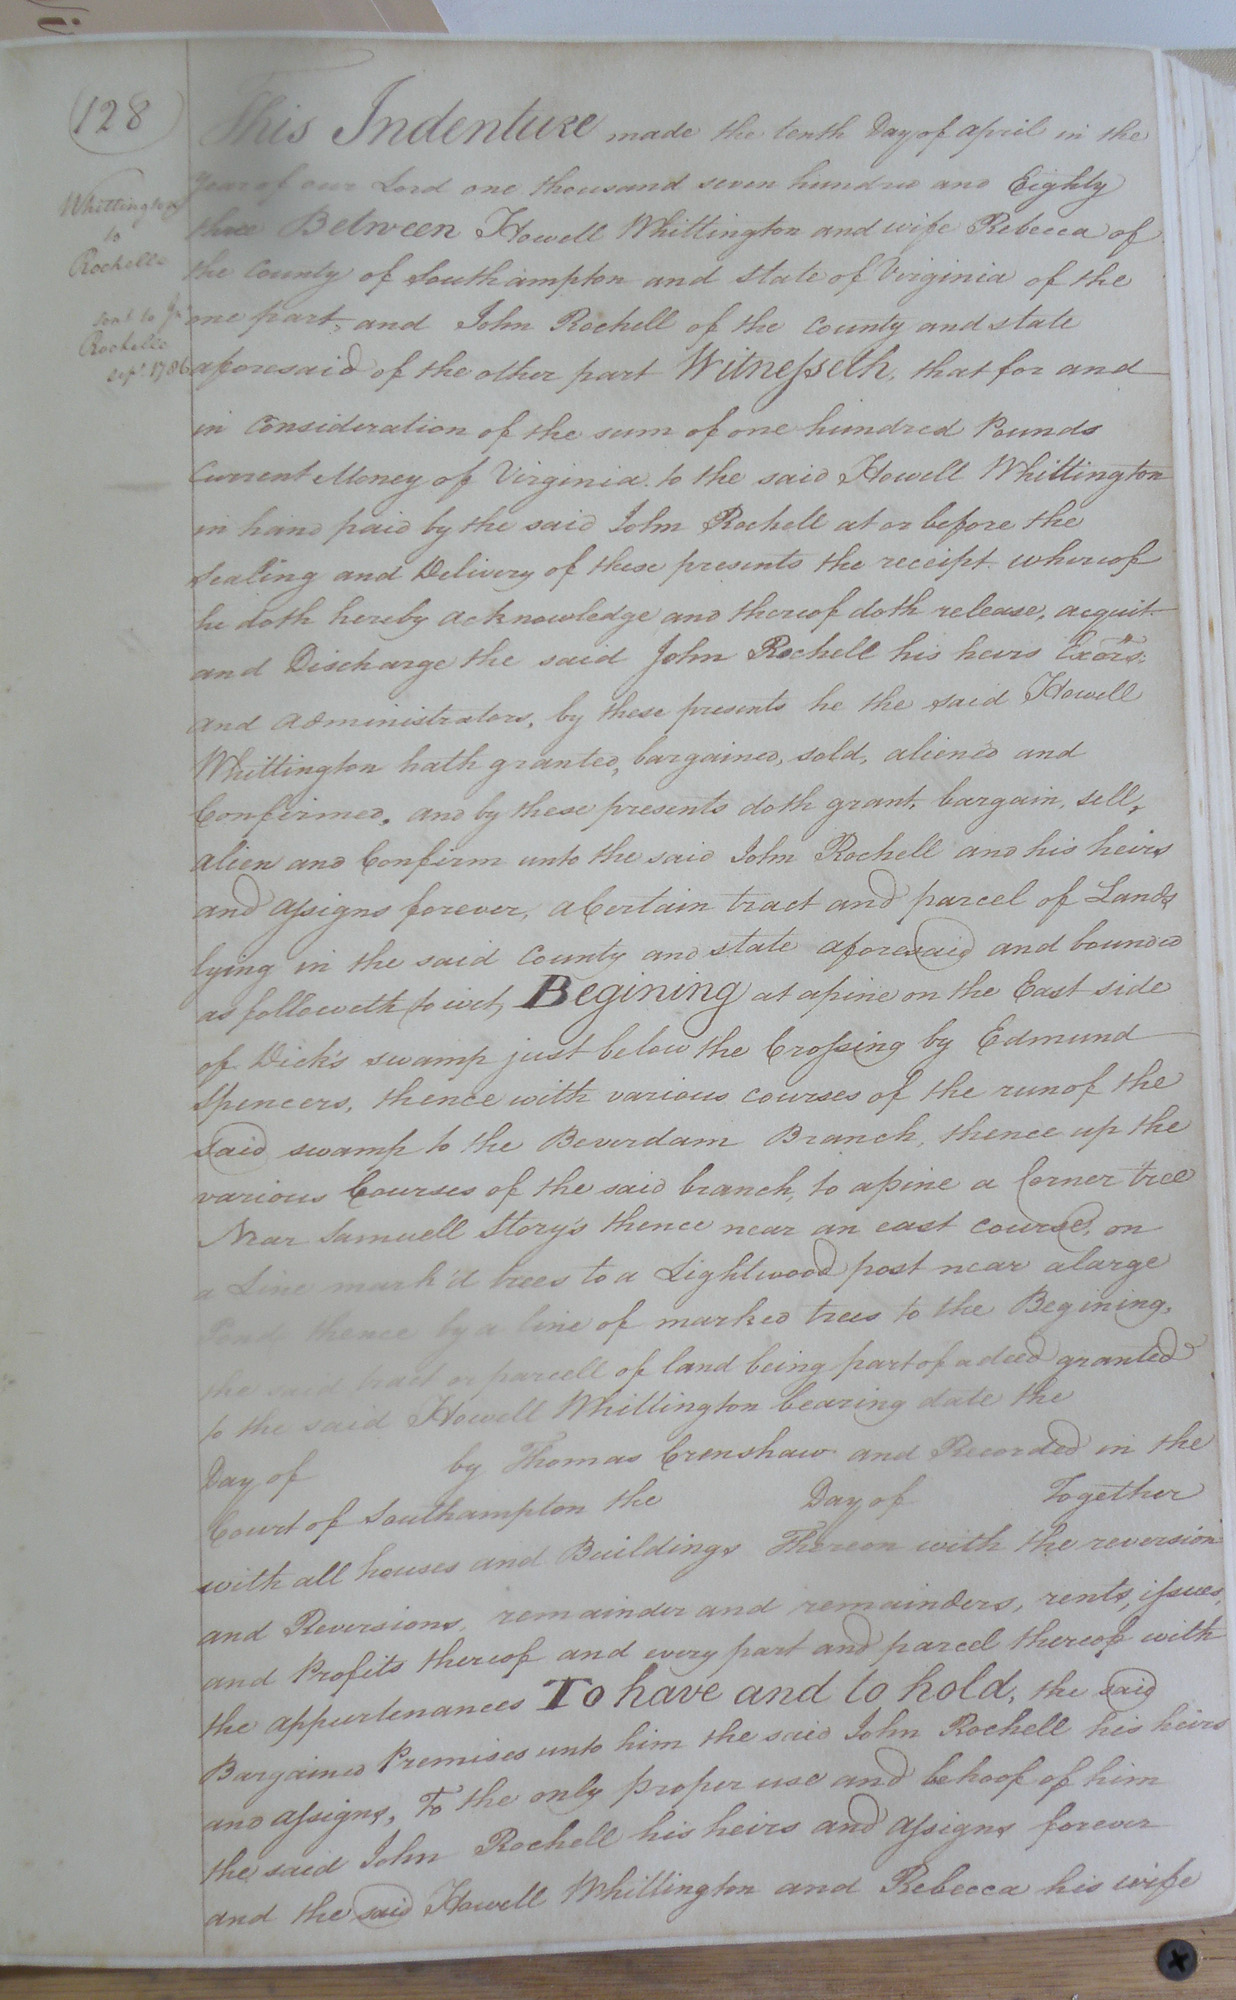 128
Whittington
to
Rochelle
sent to Jn
Rochelle
Sept. 1786
This Indenture made the tenth Day of april in the
year of our Lord one thousand seven hundred and Eighty
three Between Howell Whittington and wife Rebecca of
the County of Southampton and State of Virginia of the
one part, and John Rochell of the County and state
aforesaid of the other part Witnesseth, that for and
in Consideration of the sum of one hundred Pounds
Current Money of Virginia to the said Howell Whittington
in hand paid by the said John Rochell at or before the
Sealing and Delivery of these presents the receipt whereof
he doth hereby acknowledge and thereof doth release, acquit
and Discharge the said John Rochell his heirs Exors:
and administrators, by these presents he the said Howell
Whittington hath granted, bargained, sold, aliened and
Confirmed, and by these presents doth grant, bargain, sell,
alien and Confirm unto the said John Rochell and his heirs
and assigns forever, a Certain tract and parcel of Lands
lying in the said County and state aforesaid and bounded
as followeth to wit, Begining at a pine on the East side
of Dick's swamp just below the Crossing by Edmund
Spencers, thence with various courses of the run of the
said swamp to the Beverdam Branch, thence up the
various Courses of the said branch, to a pine a Corner tree
Near Samuell Story's thence near an east course, on
a Line mark'd trees to a Lightwood post near a large
Pond thence by a line of marked trees to the Begining,
the said tract or parcell of land being part of a deed granted
to the said Howell Whittington bearing date the
Day of by Thomas Crenshaw and Recorded in the
Court of Southampton the Day of Together
with all houses and Buildings Thereon with the reversion
and Reversions, remainder and remainders, rents, issues,
and Profits thereof and every part and parcel thereof with
the appurtenances To have and to hold, the said
Bargained Premises unto him the said John Rochell his heirs
and assigns, To the only proper use and behoof of him
the said John Rochell his heirs and assigns forever
and the said Howell Whittington and Rebecca his wife